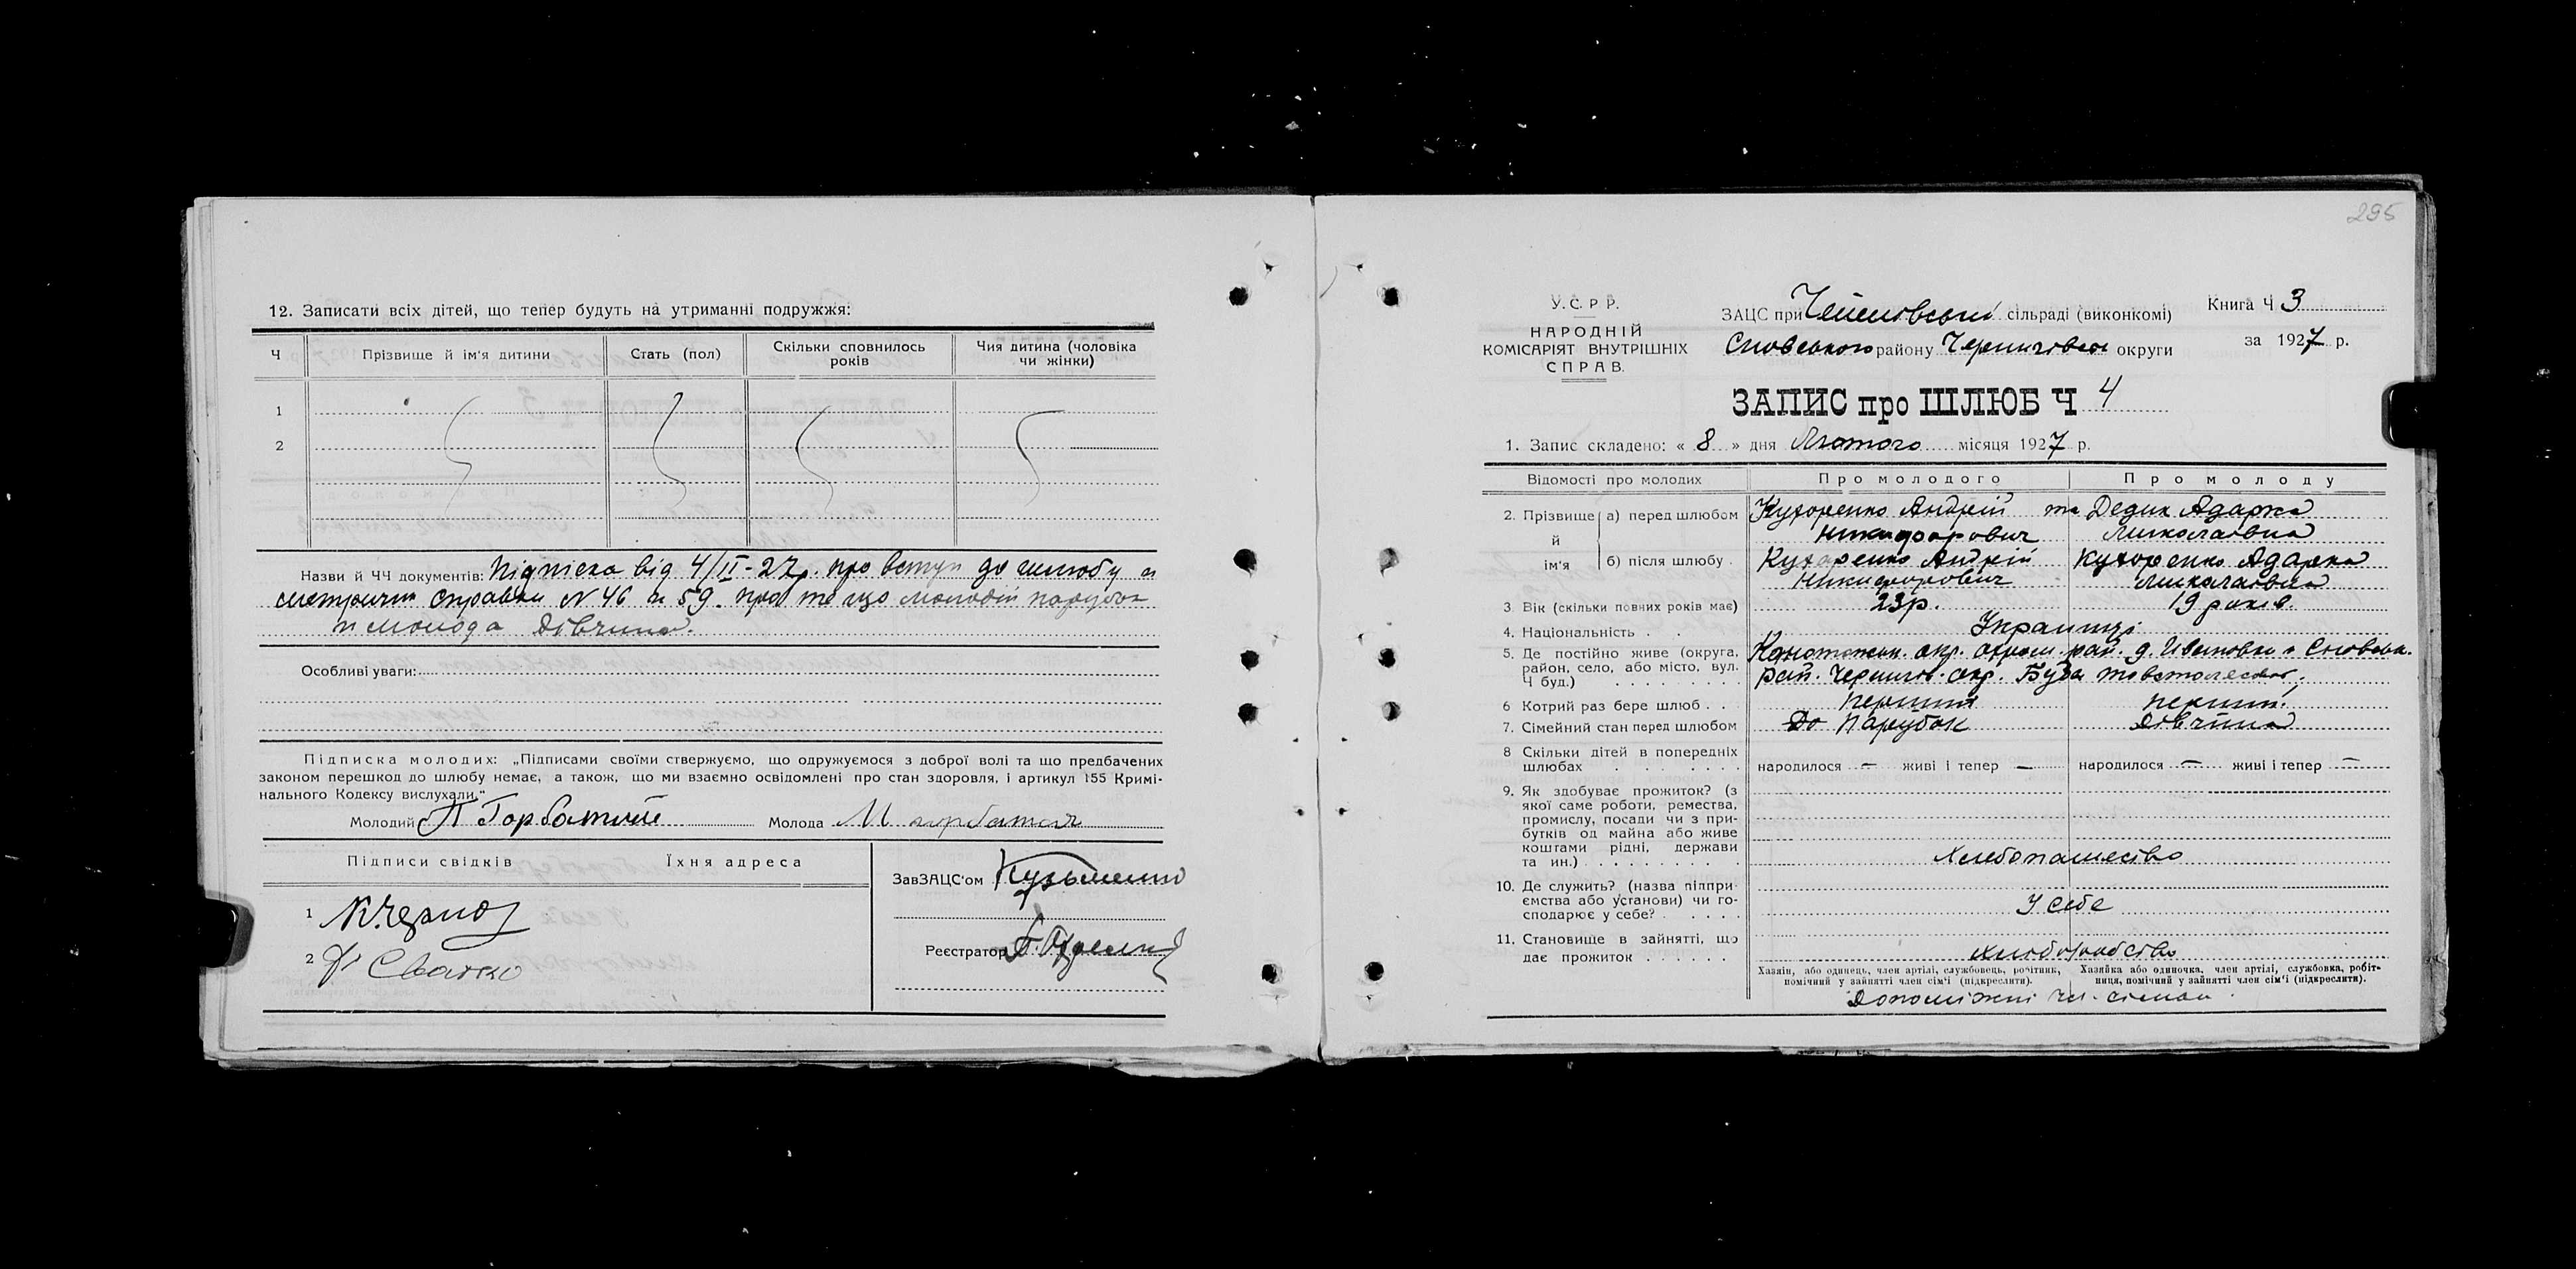 12. Записати всіх дітей, що тепер будуть на утриманні подружжя:
Ч Прізвище й ім'я дитини Стать (пол) Скільки сповнилось років Чия дитина (чоловіка чи жінки)
1
2
Назви й ЧЧ документів: Підписка від 4/II-27р. про вступ до шлюбу и
метричн справки N 46 и 59. про те що молодий парубок
и молода дівчина.
Особливі уваги:
Підписка молодих: „Підписами своїми ствержуємо, що одружуємося з доброї волі та що предбачених
законом перешкод до шлюбу немає, а також, що ми взаємно освідомлені про стан здоровля, і артикул 155 Кримі-
нального Кодексу вислухали."
Молодий П Горбатий Молода М горбатая
Підписи свідків Їхня адреса
ЗавЗАЦС'ом Кузьменко
1
2 Сватко
Реєстратор
295
У.С.Р.Р.
НАРОДНІЙ
КОМІСАРІЯТ ВНУТРІШНІХ
СПРАВ.
ЗАЦС при сільраді (виконкомі)
Сновського району Чернигівсь округи
Книга Ч 3
за 1927 р.
ЗАПИС про ШЛЮБ Ч 4
1. Запис складено: « 8 » дня Лютого місяця 1927 р.
Відомості про молодих Про молодого Про молоду
2. Прізвище й ім'я а) перед шлюбом Кухоренко Андрій та Дедик Адарка
Никифорович Миколаівна
б) після шлюбу Кухаренко Андрій Кухоренко Адарка
Никифорович Миколаівна
3. Вік (скільки повних років має) 23р. 19 років.
4. Національність . . Украинці
5. Де постійно живе (округа, район, село, або місто, вул. Ч буд.) Конотопськ. окр. рай. д. Ивановки и Сновськ.
рай. Чернигів. окр. Буда
6 Котрий раз бере шлюб . . Перший перший.
7. Сімейний стан перед шлюбом До Парубок Дівчина
8 Скільки дітей в попередніх шлюбах народилося — живі і тепер — народилося — живі і тепер —
9. Як здобуває прожиток? (з
якої саме роботи, ремества,
промислу, посади чи з при-
бутків од майна або живе
коштами рідні, держави
та ин.) Хлебопашество
10. Де служить? (назва підпри-
ємства або установи) чи го-
сподарює у себе? У себе
11. Становище в зайнятті, що
дає прожиток
Хазяін, або одинець, член артілі, службовець, робітник, помічний у зайнятті член сім'ї (підкреслити). Хазяйка або одиночка, член артілі, службовка, робіт-ниця, помічний у зайнятті член сім'ї (підкреслити).
Допоміжні чл. сімьи